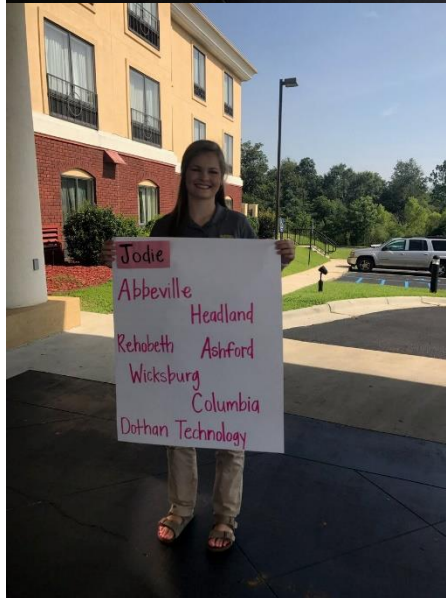 Jodie
Abbeville
Headland
Rehobeth Ashford
Wicksburg
Columbia
Dothan Technology